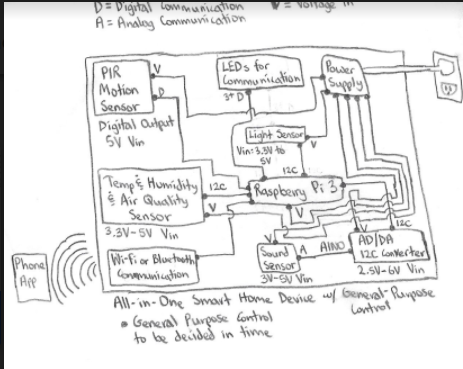 D = Digital Communication
V = Voltage in
A = Analog Communication
PIR
Motion
Sensor
V
D
Digital Output
5V Vin
LEDs for
Communication
3+ D
Power
Supply
Light Sensor
Vin: 3.3V to
5V
V
I2C
Temp & Humidity
& Air Quality
Sensor
I2C
V
3.3V-5V Vin
Raspberry Pi 3
V
V
I2C
Wi-Fi or Bluetooth
Communication
V
Sound
Sensor
A
AIN0
3V-5V Vin
AD/DA
I2C Converter
2.5V-6V Vin
Phone
App
All-in-One Smart Home Device w/ General-Purpose
Control
General Purpose Control
to be decided in time